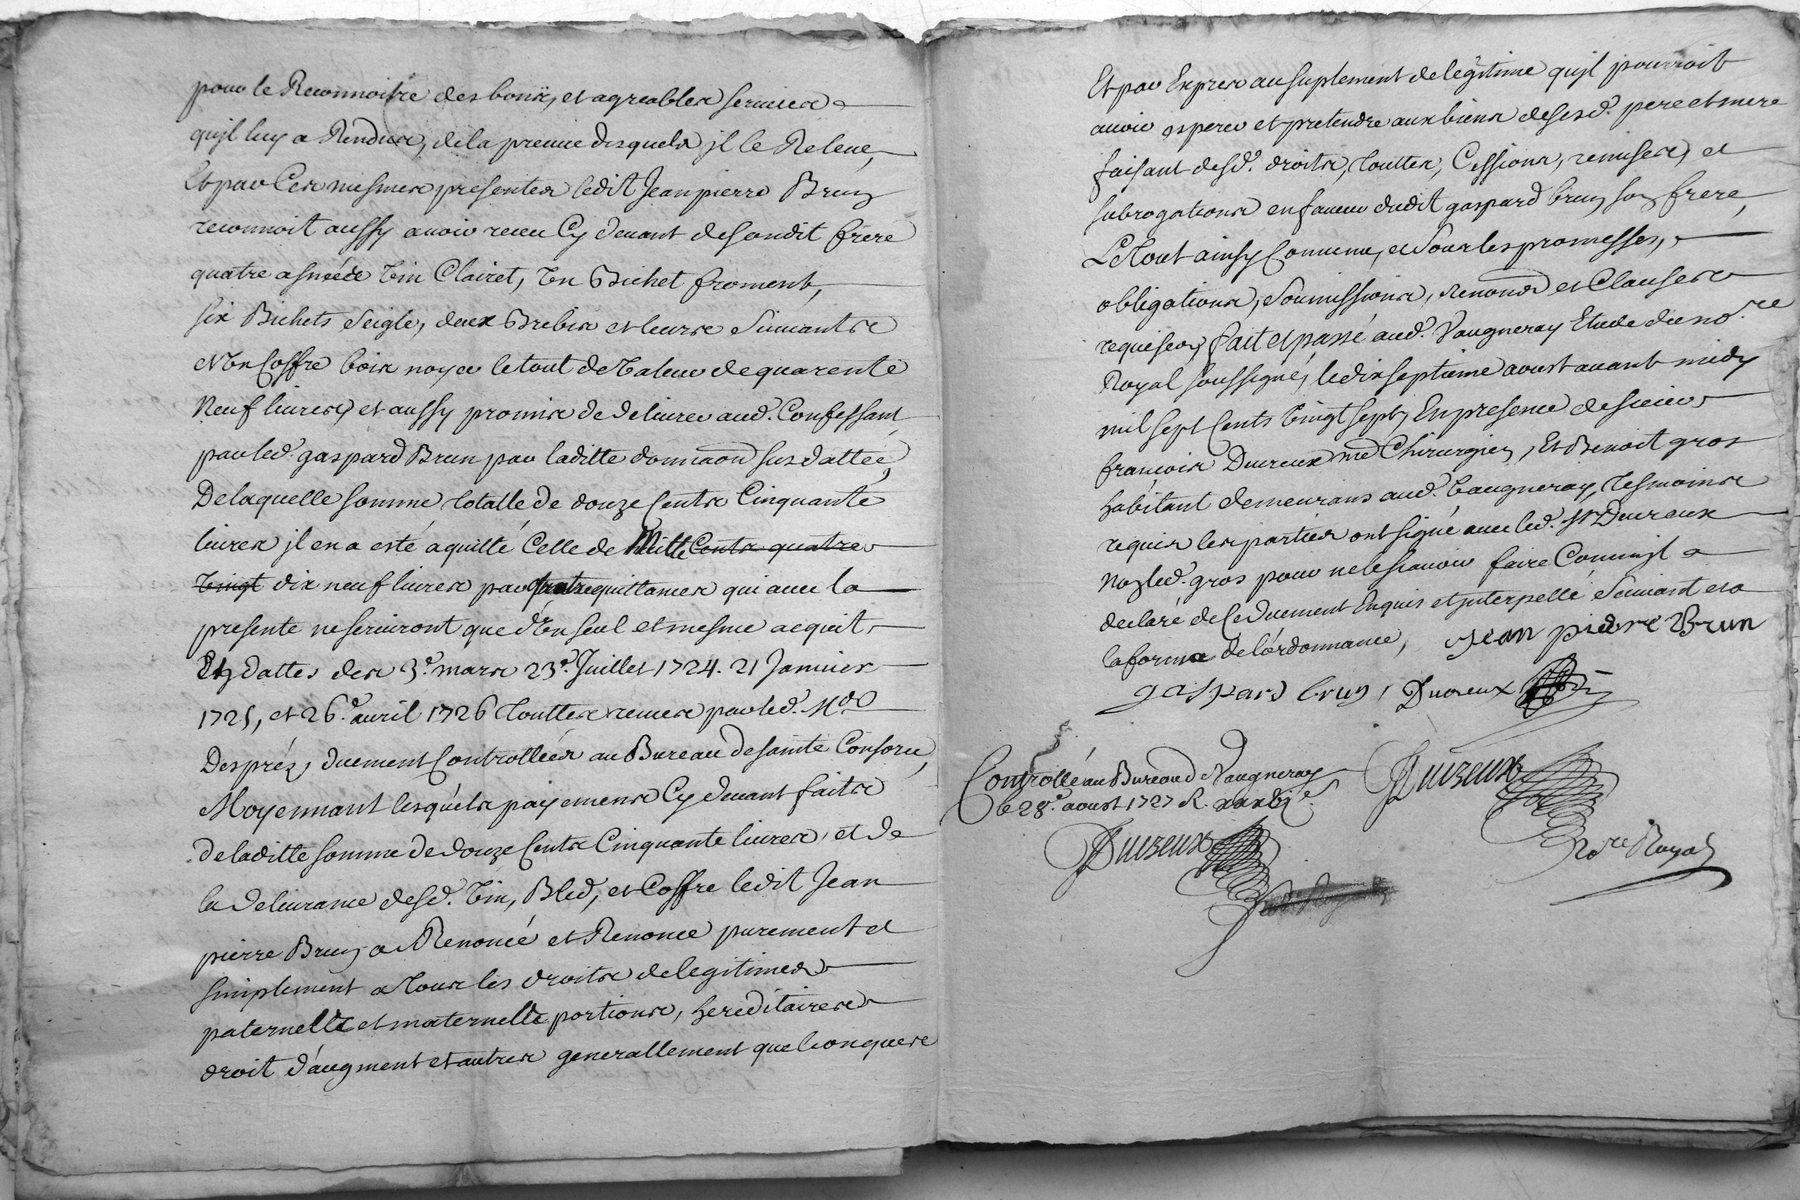 pour le Reconnoitre des bons, et agreables services
qujl luy a Rendus, de la preuve desquels jl le Releve,
Et par Ces mesmes presentes ledit Jean pierre Brun
reconnoit aussy avoir receu Cy devant de sondit frere
quatre asnées vin Clairet, Un Bichet froment,
six Bichets seigle, deux Brebis et leurs suivants
et Un Coffre bois noyer le tout de valeur de quarente
Neuf livres, et aussy promis de delivrer aud. Confessant
par led. gaspard Brun par laditte donnaon susdattée,
De laquelle somme totalle de douze Cents Cinquante
livres jl en a esté aquitté Celle de Mille Cents quatre
vingt dix neuf livres par quatre quittances qui avec la
presente ne serviront que d'Un seul et mesme acquit
En dattes des 3e. mars 23e. Juillet 1724. 21 Janvier
1725, et 26e. avril 1726 touttes receues par led. Me
Després, duement Controllées au Bureau de sainte Consorce,
Moyennant lesquels payemens Cy devant faits
de laditte somme de douze Cents Cinquante livres, et de
la delivrance desd. vin, Bled, et Coffre ledit Jean
pierre Brun a Renoncé et Renonce purement et
simplement a tous les droits de legitimes
paternelle et maternelle portions, hereditaires
droit d'augment et autres generallement quelconques
Et par Exprés au suplement de legitime qujl pourroit
avoir esperer et pretendre aux biens de sesd. pere et mere
faisant desd. droits, touttes, Cessions, remises, et
subrogations en faveur dudit gaspard brun son frere,
Le tout ainsy Convenu, et sous les promesses,
obligations, soumissions, renon₀ns et Clauses
requises, fait et passé aud. Vaugneray Etude du nore
Royal soussigné, le dix septieme aoust avant midy
mil sept Cents vingt sept, En presence de sieur
francois Dureux me Chirurgien, Et Benoit gros
habitant demeurans aud. vaugneray, tesmoins
requis les parties ont signé avec led. sr Dureux
Non led. gros pour ne le scavoir faire Comme jl a
declaré de Ce duement Enquis et jnterpellé suivant
la forme de l'ordonnance, Jean pierre Brun
gaspard brun, Dureux
Controllé au Bureau de Vaugneray
le 28e. aoust 1727 R.
Dureux
Dureux
Nore Royal